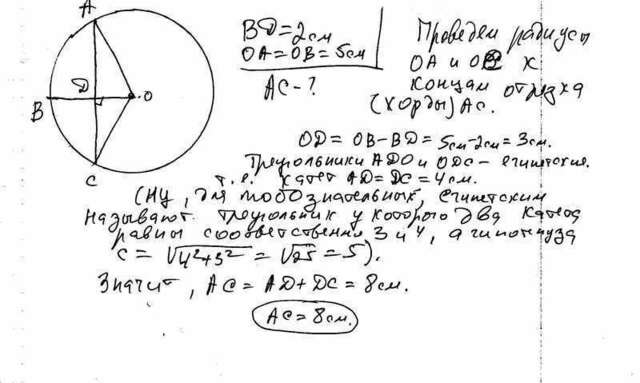 A
D
O
B
C
BD=2см
OA=OB=5см
AC-?
Проведем радиусы
OA и OB к
концам отрезка
(хорды) AC.
OD=OB-BD=5см-2см=3см.
Треугольники ADO и ODC - египетские.
т.е. катет AD=DC=4см.
(Ну, для любознательных, египетским
называют треугольник у которого два катета
равны соответственно 3 и 4, а гипотенуза
c=√4²+3²=√25=5).
Значит, AC=AD+DC=8см.
AC=8см.